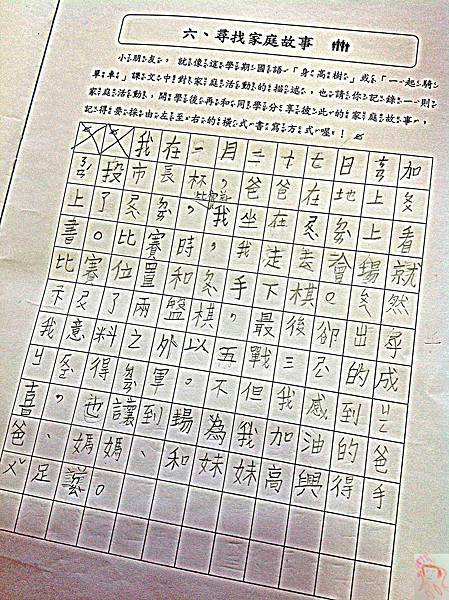 六、尋找家庭故事
小朋友，就像這學期國語「身高樹」或「一起騎
單車」課文中對家庭活動的描述，也請你記錄一則
家庭活動，開學後再和同學分享彼此的家庭故事，
記得要採由左至右的橫式書寫方式喔！
我在一月二十七日 加
投市長杯比賽，爸爸在地上
上了，我坐在 上看
書。比賽時，我走去會場就
比賽位置和 手下棋。 然
下 了兩盤棋，最後卻出乎
我意料之外以五戰三 的成
得 軍。不但我感到
喜，也讓到場為我加油的爸
爸、媽媽、和妹妹高興得手
足 。